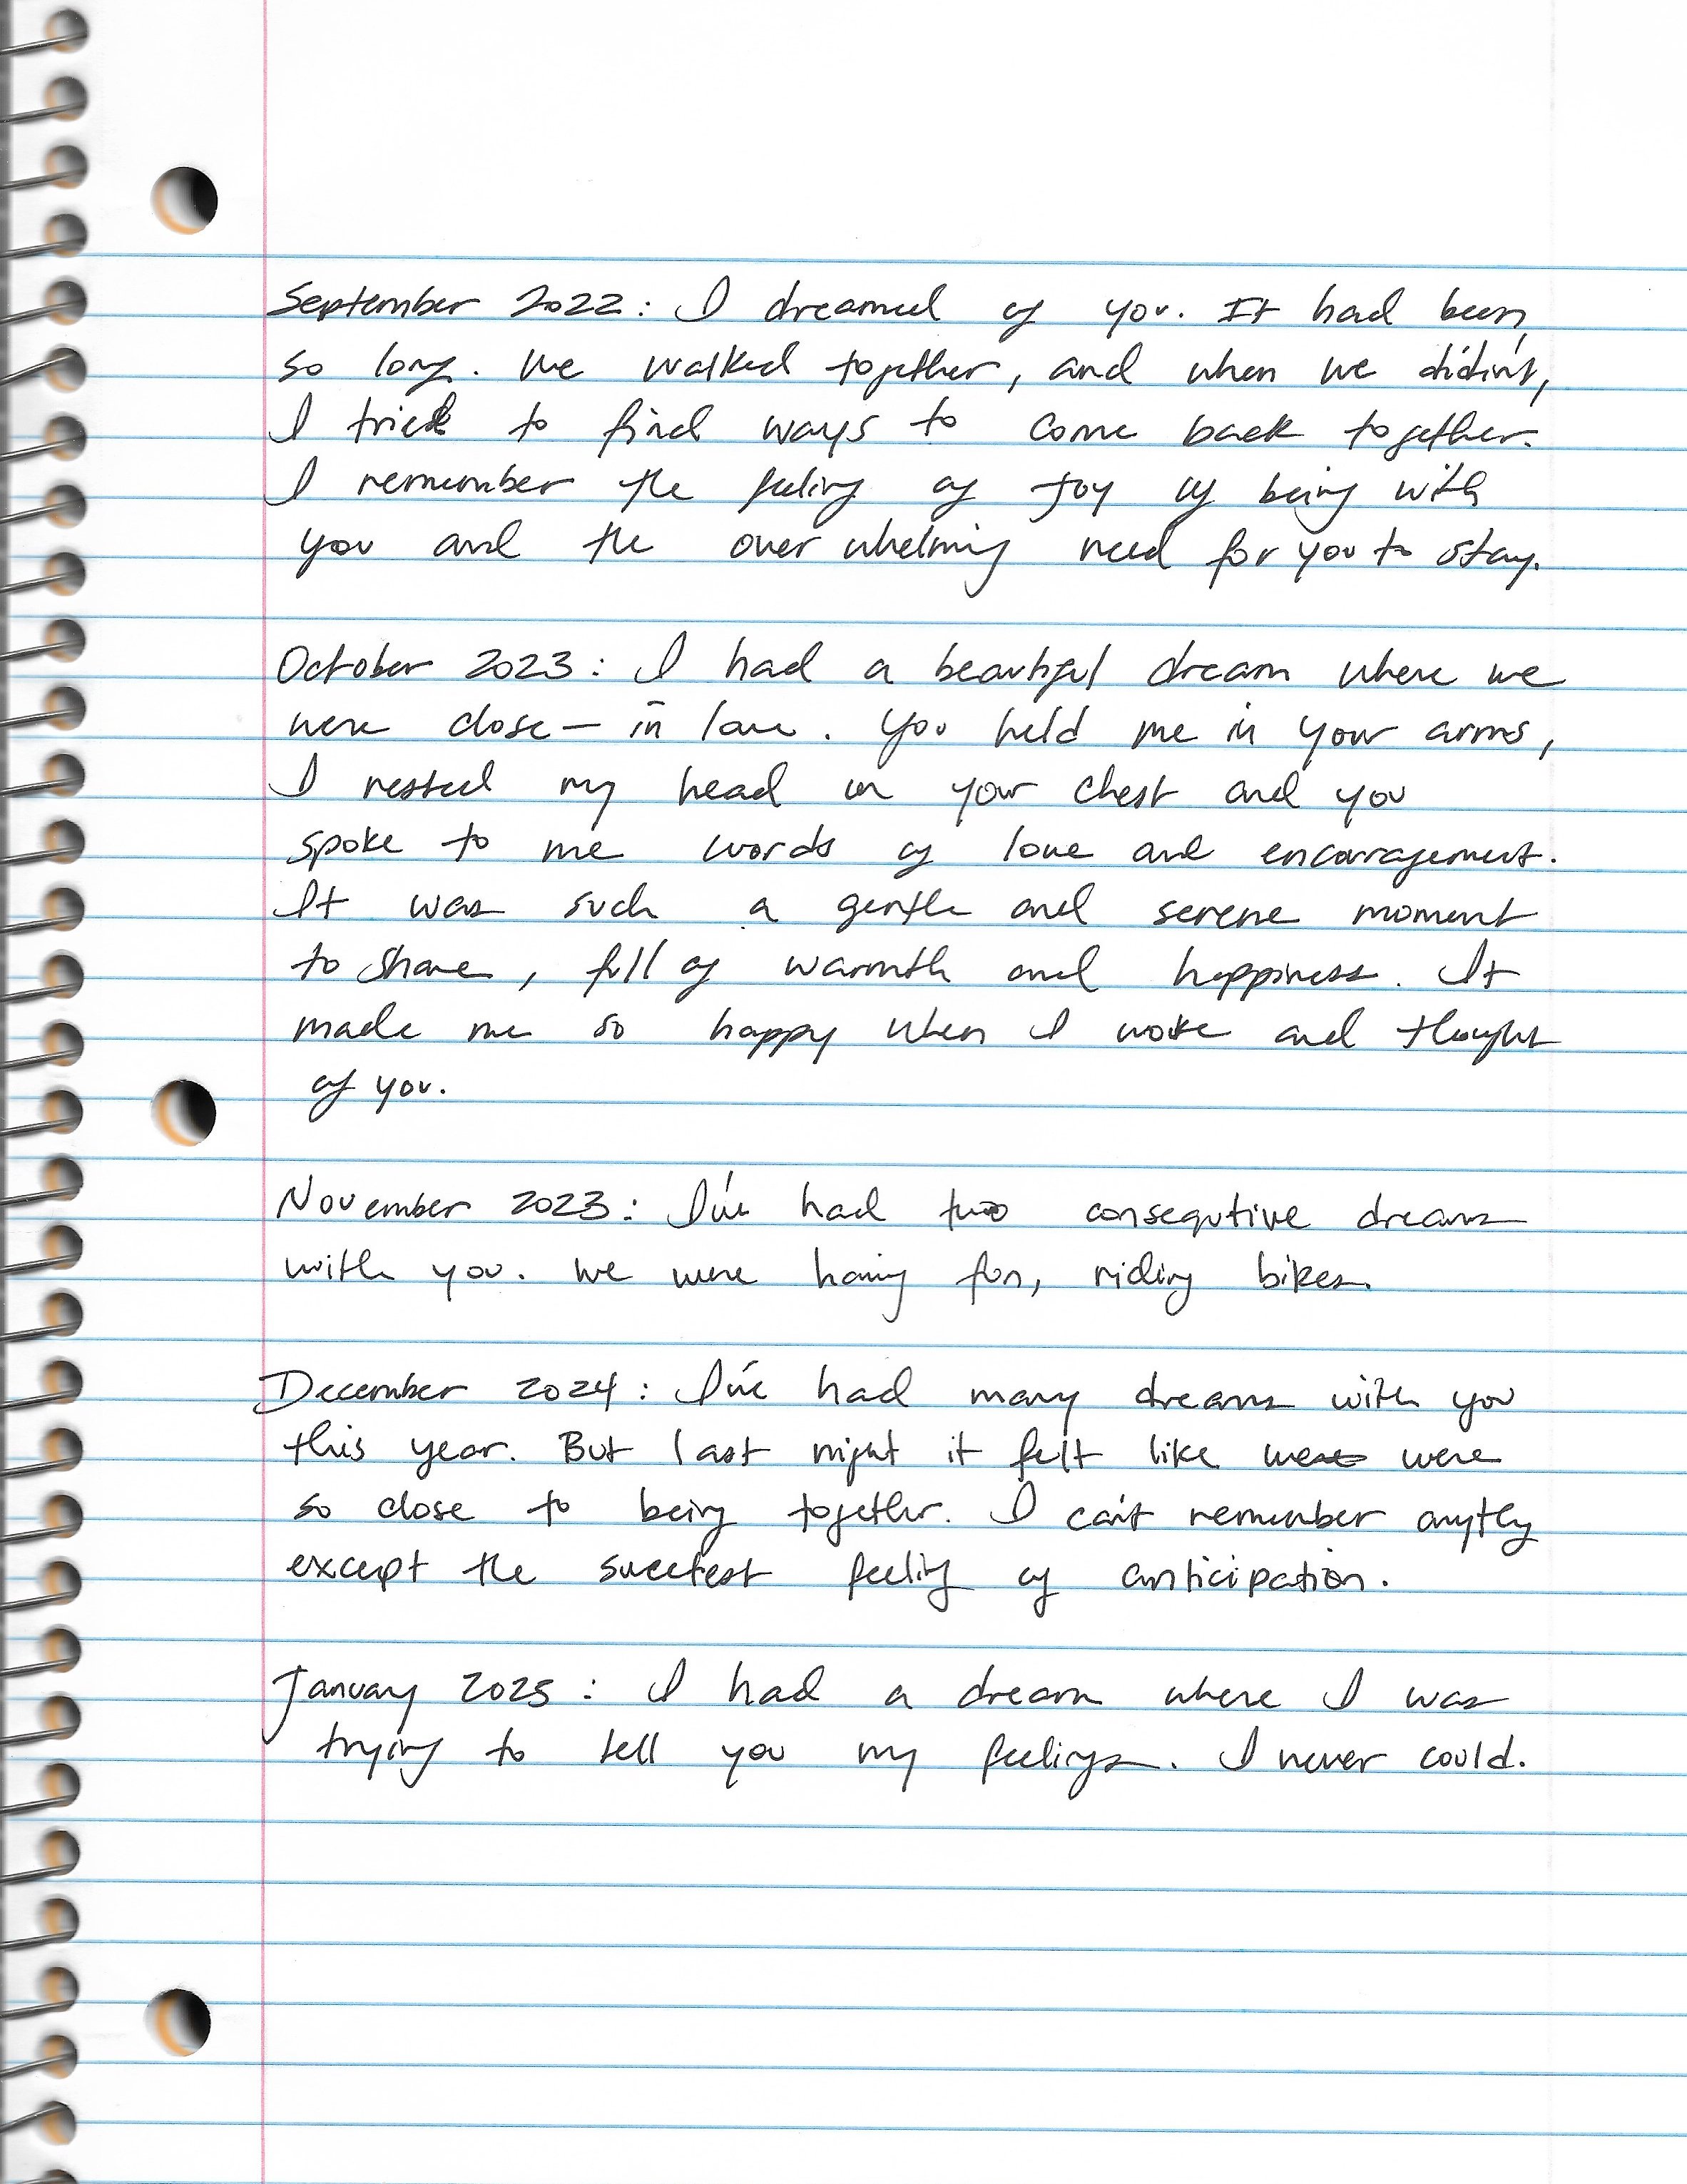 September 2022: I dreamed of you. It had been
so long. We walked together, and when we didn't,
I tried to find ways to come back together.
I remember the feeling of joy of being with
you and the overwhelming need for you to stay.
October 2023: I had a beautiful dream where we
were close — in love. You held me in your arms,
I rested my head on your chest and you
spoke to me words of love and encouragement.
It was such a gentle and serene moment
to share, full of warmth and happiness. It
made me so happy when I woke and thought
of you.
November 2023: I've had two consequtive dreams
with you. We were having fun, riding bikes.
December 2024: I've had many dreams with you
this year. But last night it felt like were
so close to being together. I can't remember anything
except the sweetest feeling of anticipation.
January 2025: I had a dream where I was
trying to tell you my feelings. I never could.